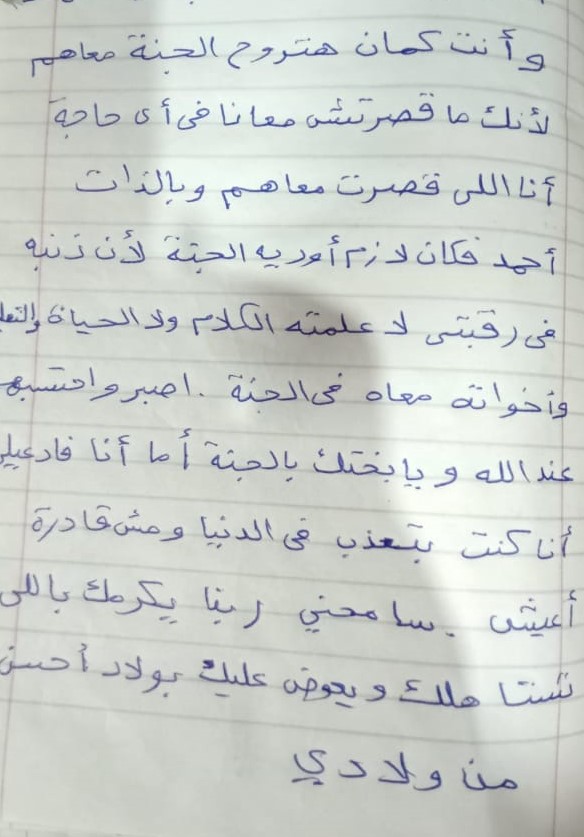 وأنت كمان هتروح الجنة معاهم
لأنك ما قصرتش معانا فى أى حاجة
أنا اللى قصرت معاهم وبالذات
أحمد فكان لازم أوديه الجنة لأن ذنبه
فى رقبتى لا علمته الكلام ولا الحياة
وأخواته معاه فى الجنة . اصبر واحتسبهم
عند الله ويا بختك بالجنة أما أنا فادعيلى
أنا كنت بتعذب فى الدنيا ومش قادرة
أعيش . سامحني ربنا يكرمك باللى
تستاهلك ويعوض عليك بولاد أحسن
من ولادي